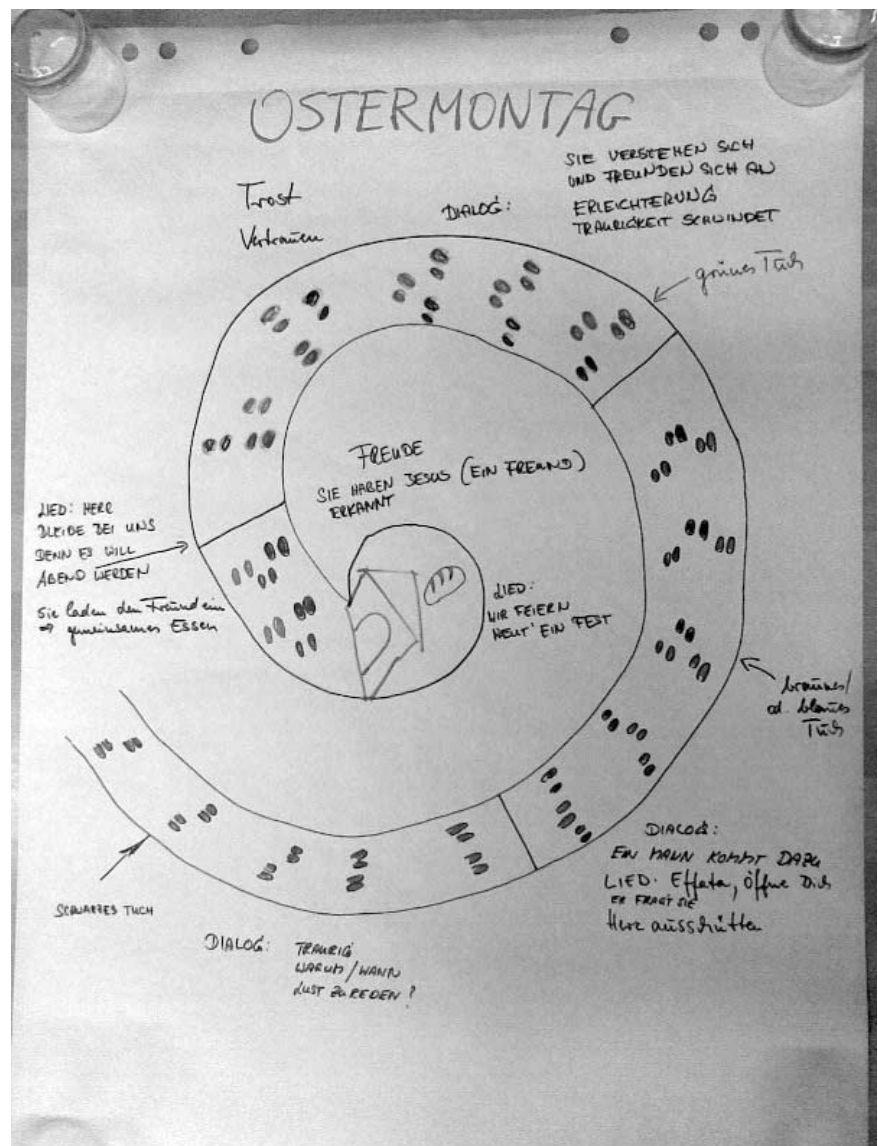 OSTERMONTAG
Trost
Vertrauen
DIALOG:
SIE VERSTEHEN SICH
UND FREUNDEN SICH AN
ERLEICHTERUNG
TRAURIGKEIT SCHWINDET
grünes Tuch
FREUDE
SIE HABEN JESUS (EIN FREUND)
ERKANNT
LIED: HERR
BLEIBE BEI UNS
DENN ES WILL
ABEND WERDEN
Sie laden den Freund ein
⇒ gemeinsames Essen
LIED:
WIR FEIERN
HEUT' EIN FEST
braunes/
od. blaues
Tuch
DIALOG:
EIN MANN KOMMT DAZU
LIED: Effata, öffne Dich
ER FRAGT SIE
Herz ausschütten
SCHWARZES TUCH
DIALOG: TRAURIG
WARUM/WANN
LUST ZU REDEN?